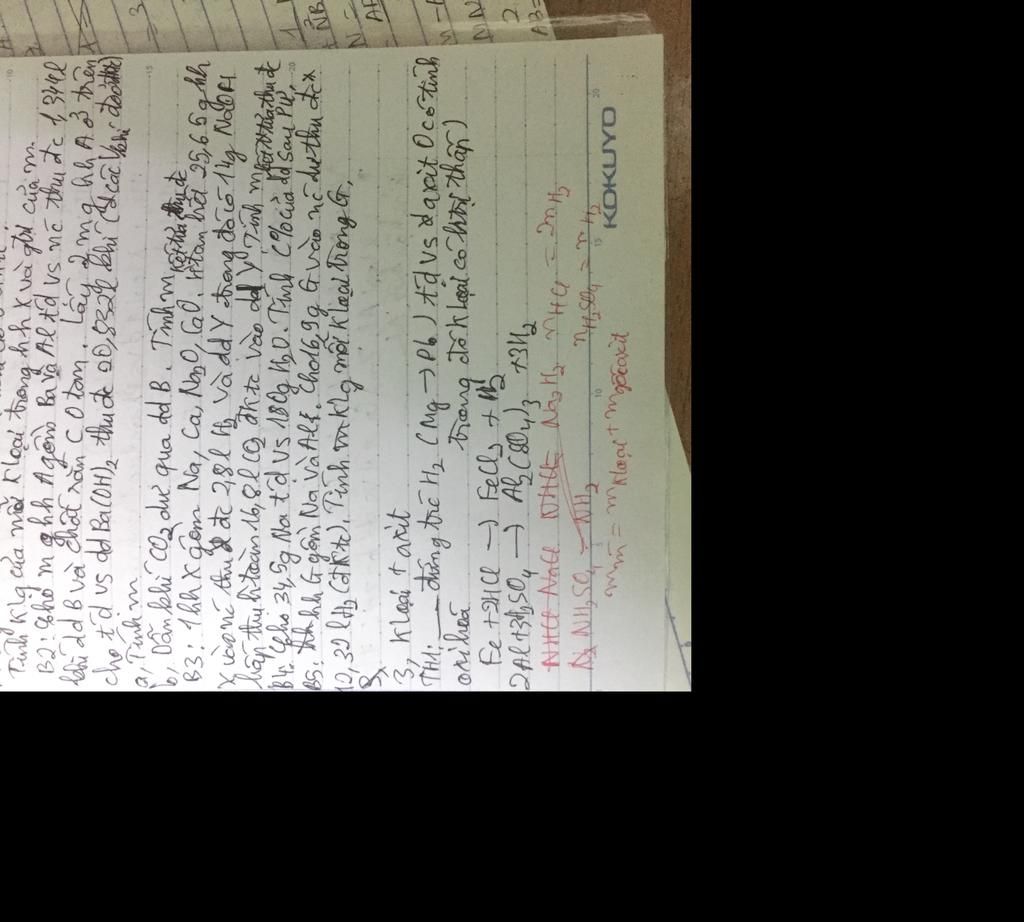 Tính klg của mỗi kloại trong hh X và gtrị của m.
B2: Cho m g hh A gồm Ba và Al td vs nc thu đc 1,344l
khí dd B và chất rắn C 0 tan. Lấy 2m g hh A ở trên
cho td vs dd Ba(OH)2 thu đc 20,832l khí (
a, Tính m
b, Dẫn khí CO2 dư qua dd B. Tính m kết tủa thu đc
B3: 1 hh X gồm Na, Ca, Na2O, CaO. Htan hết 25,65g hh
X vào nc thu đc 2,8l H2 và dd Y trong đó có 14g NaOH
hấp thụ htoàn 16,8l CO2 đktc vào dd Y. Tính m kết tủa thu đc
B4. Cho 34,5g Na td vs 180g H2O. Tính C% của dd sau PƯ.
B5: hh G gồm Na và Al4. Cho 16,9g G vào nc dư thu đc x
12,32 l H2 (đktc). Tính m klg mỗi kloại trong G.
3,
3, Kloại + axit
TH1: đứng trc H2 (Mg → Pb) td vs dd axit 0 có tính
oxi hoá trong đó kloại có htrị thấp)
Fe + 2HCl → FeCl2 + H2
2Al + 3H2SO4 → Al2(SO4)3 + 3H2
NHCl NaCl NHCl Na2H2 nHCl = 2nH2
N2 NH2SO4 = NH2 nH2SO4 = nH2
mm = mkloại + mgốc axit
KOKUYO